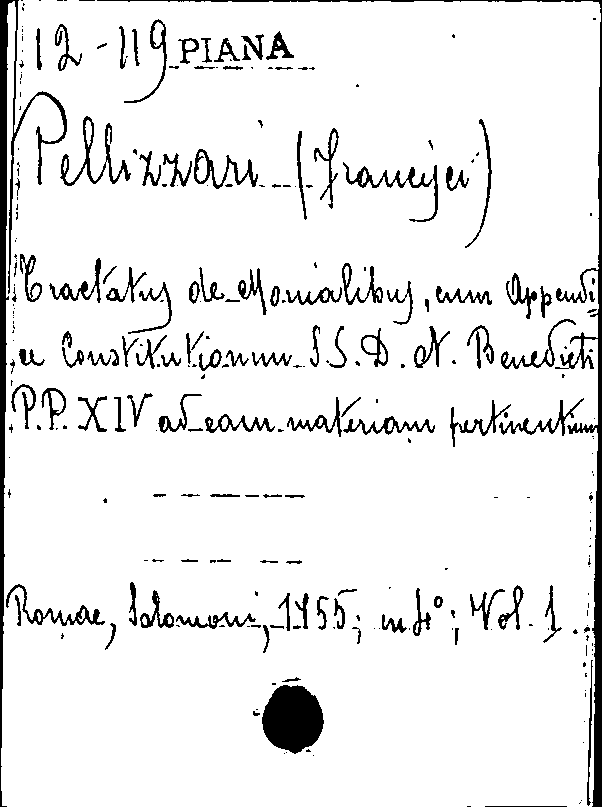 12-119 PIANA
Pellizzari (Francisci)
Tractatus de Monialibus, cum Appendi
ce Constitutionum S S. D. N. Benedicti
P.P. XIV ad eam materiam pertinentium
Romae, Salomoni, 1755; in 4°; Vol. 1.